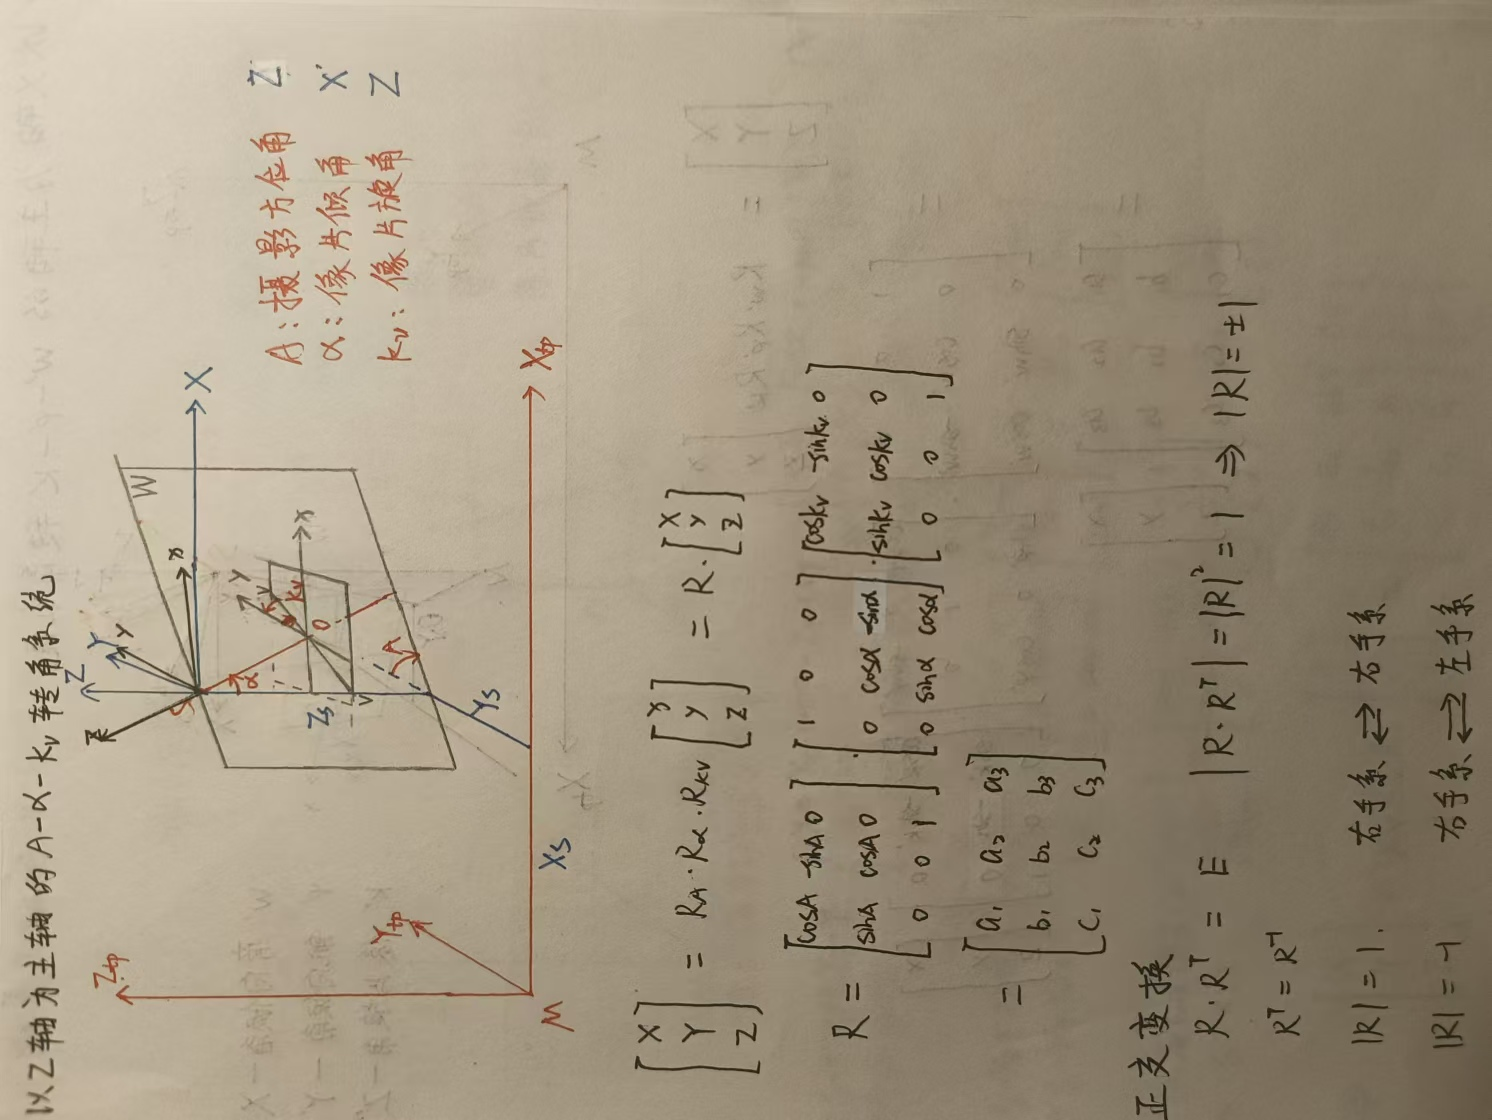 以Z轴为主轴的A-α-kv转角系统
Z
Y
y
z
S
x
X
W
α
y
kv
kv
x
O
Zs
v
A
Ys
Ztp
Ytp
M
Xs
Xtp
A:摄影方位角 Z
α:像片倾角 X'
kv:像片旋角 Z
[X Y Z] = RA·Rα·Rkv [x y z] = R·[x y z]
R = [cosA -sinA 0
sinA cosA 0
0 0 1] · [1 0 0
0 cosα -sinα
0 sinα cosα] · [coskv -sinkv 0
sinkv coskv 0
0 0 1]
= [a1 a2 a3
b1 b2 b3
c1 c2 c3]
正交变换
R·R^T = E |R·R^T| = |R|^2 = 1 ⇒ |R| = ±1
R^T = R^-1
|R| = 1. 右手系 ⇄ 右手系
|R| = -1 右手系 ⇄ 左手系